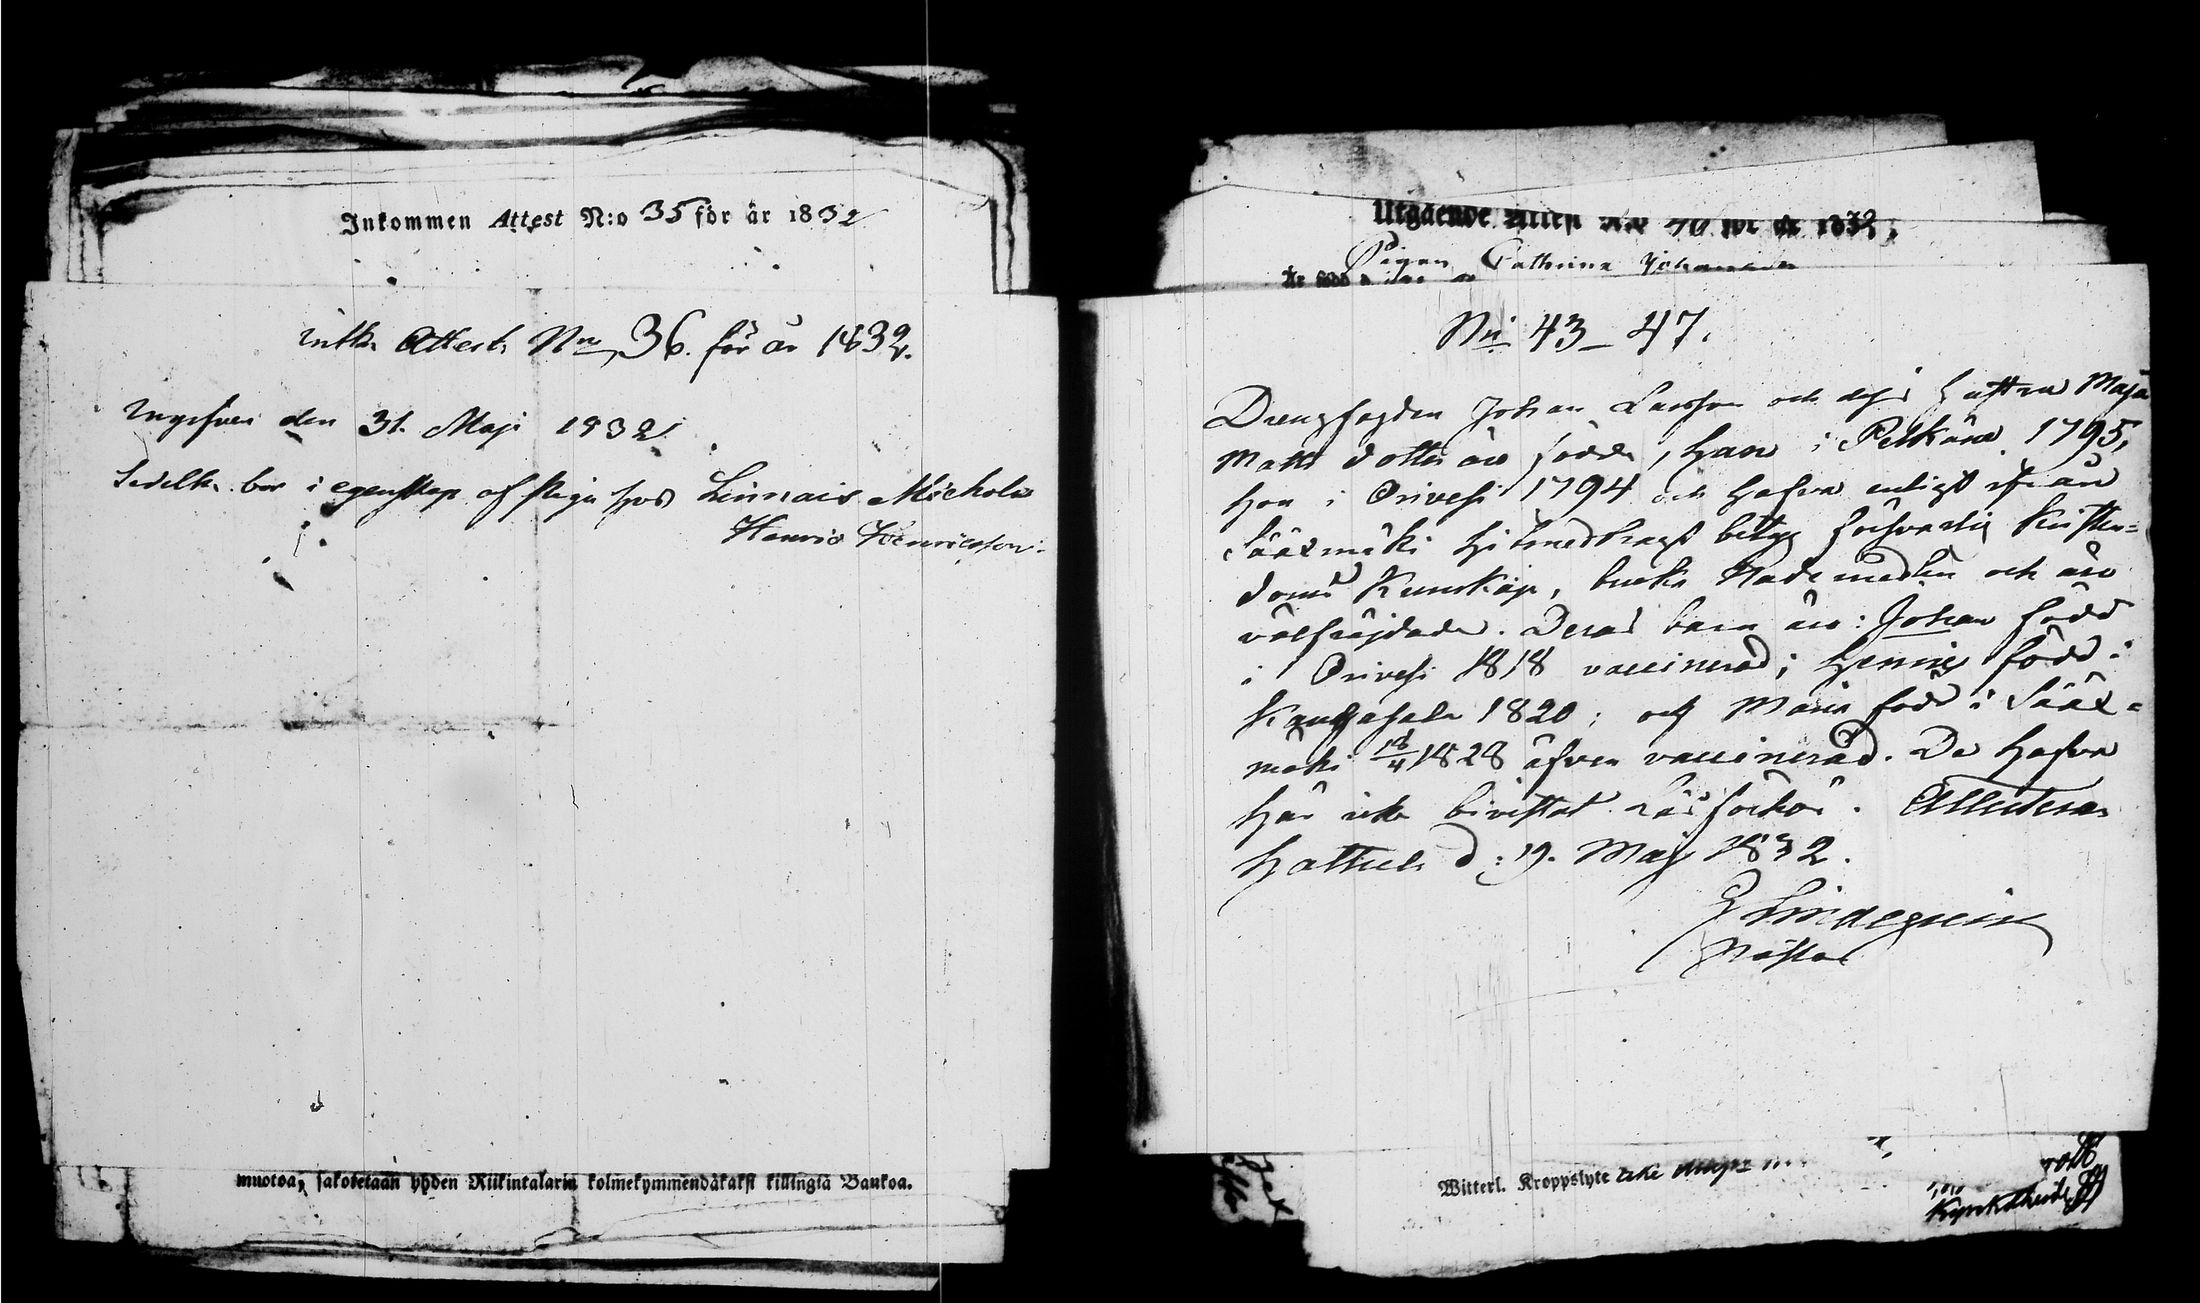 Inkommen Attest N:o 35 för år 1832
Attest No 36. för år 1832.
den 31. Maji 1832
bor i egenskap af piga hos Linnais
Henric Henricsson
muotoa, sakotetaan yhden Riikintalarin kolmekymmendäkaksi killingiä Bankoa.
Utgående Attest N:o 70 för år 1832,
Pigan Cathrina
No 43_47.
Drengfogden Johan Larsson och dess hustru Maja
Matts dotter äro födde, han i Pelkäne 1795,
hon i Orivesi 1794 och hafva enligt ifrån
Sääxmäki hitmedbragt betyg försvarlig Kristen=
doms Kunskap, bruka Nademedlen och äro
välfräjdade. Deras barn äro: Johan född
i Orivesi 1818 vaccinerad; Henric född i
Kangasala 1820; och Maria född i Sääx=
mäki 18/4 1828 äfven vaccinerad. De hafva
här icke bivistat Läsförhör. Attesteras
Hattula d: 19. Maj 1832.
Pastor
Witterl. Kroppslyte icke